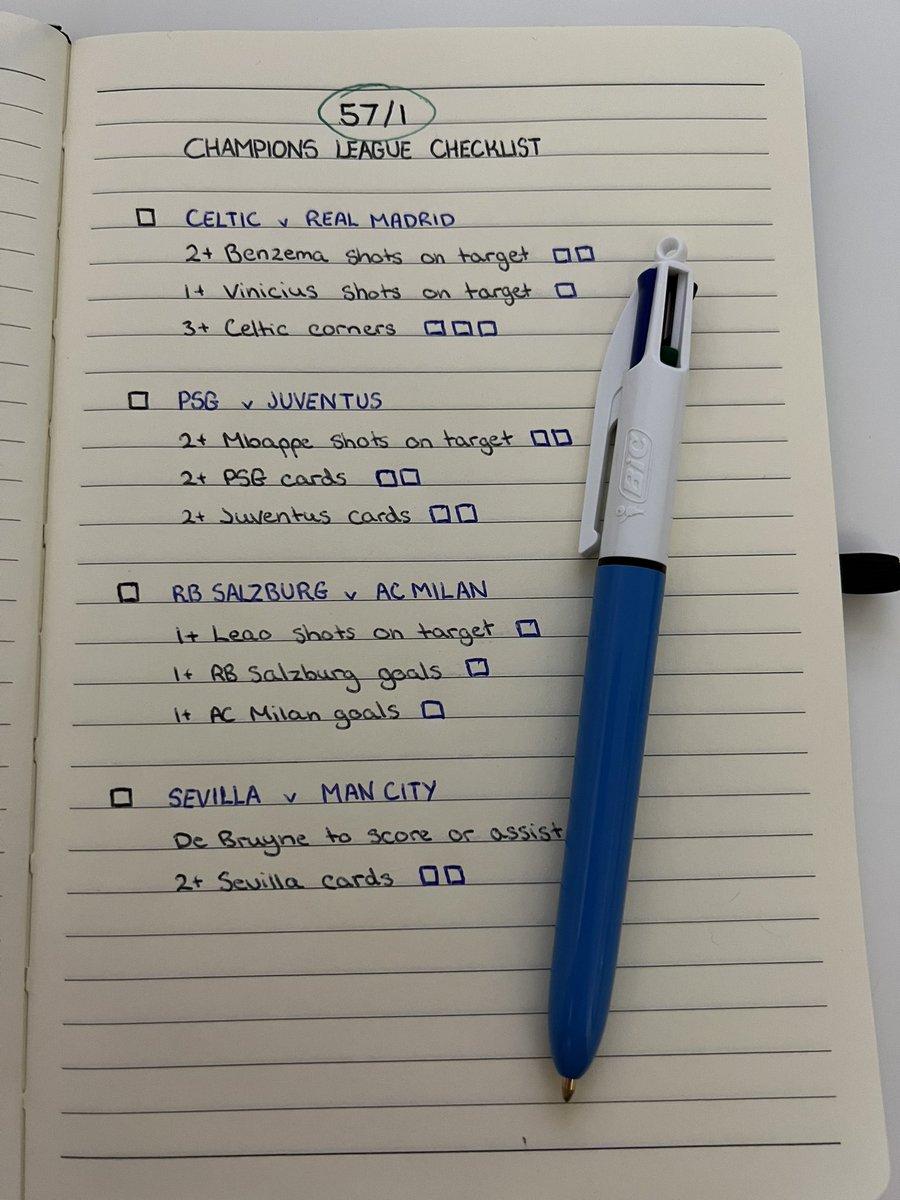 57/1
CHAMPIONS LEAGUE CHECKLIST
CELTIC v REAL MADRID
2+ Benzema shots on target
1+ Vinicius shots on target
3+ Celtic corners
PSG v JUVENTUS
2+ Mbappe shots on target
2+ PSG cards
2+ Juventus cards
RB SALZBURG v AC MILAN
1+ Leao shots on target
1+ RB Salzburg goals
1+ AC Milan goals
SEVILLA v MAN CITY
De Bruyne to score or assist
2+ Sevilla cards
BIC